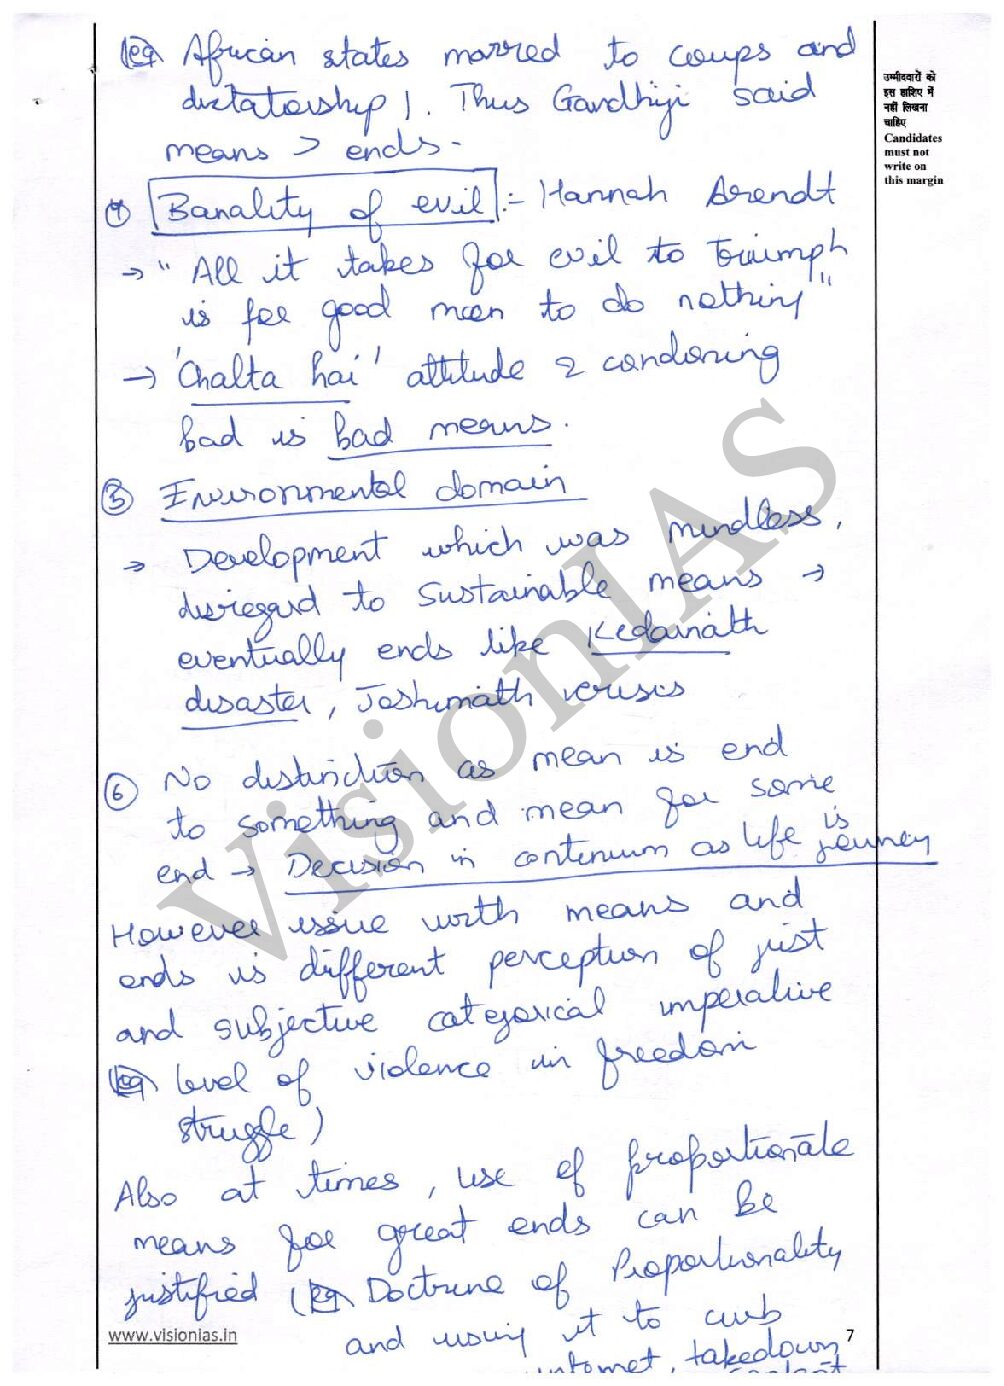 (eg) African states marred to coups and
dictatorship). Thus Gandhiji said
means > ends.
4 Banality of evil :- Hannah Arendt
→ "All it takes for evil to triumph
is for good men to do nothing"
→ 'Chalta hai' attitude & condoning
bad is bad means.
5 Environmental domain
→ Development which was mindless,
disregard to sustainable means →
eventually ends like Kedarnath
disaster, Joshimath crisis
6 No distinction as mean is end
to something and mean for some
end → Decision in continuum as life is journey
However issue with means and
ends is different perception of just
and subjective categorical imperative
(eg level of violence in freedom
struggle)
Also at times, use of proportionate
means for great ends can be
justified (eg Doctrine of Proportionality
and using it to curb
internet, takedown
content
उम्मीदवारों को
इस हाशिए में
नहीं लिखना
चाहिए
Candidates
must not
write on
this margin
VisionIAS
www.visionias.in
7